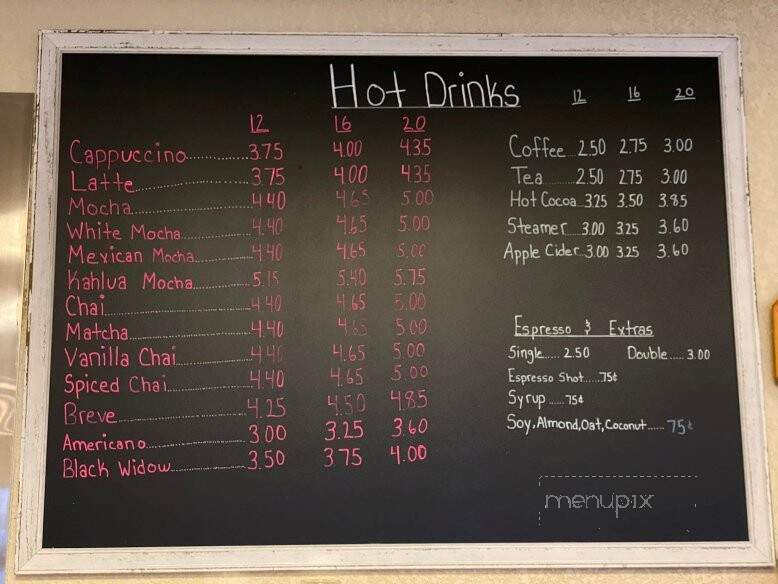 Hot Drinks
12 16 20
Cappuccino 3.75 4.00 4.35
Latte 3.75 4.00 4.35
Mocha 4.40 4.65 5.00
White Mocha 4.40 4.65 5.00
Mexican Mocha 4.40 4.65 5.00
Kahlua Mocha 5.15 5.40 5.75
Chai 4.40 4.65 5.00
Matcha 4.40 4.65 5.00
Vanilla Chai 4.40 4.65 5.00
Spiced Chai 4.40 4.65 5.00
Breve 4.25 4.50 4.85
Americano 3.00 3.25 3.60
Black Widow 3.50 3.75 4.00
12 16 20
Coffee 2.50 2.75 3.00
Tea 2.50 2.75 3.00
Hot Cocoa 3.25 3.50 3.85
Steamer 3.00 3.25 3.60
Apple Cider 3.00 3.25 3.60
Espresso & Extras
Single..... 2.50 Double..... 3.00
Espresso Shot.....75¢
Syrup.....75¢
Soy, Almond, Oat, Coconut.....75¢
menupix